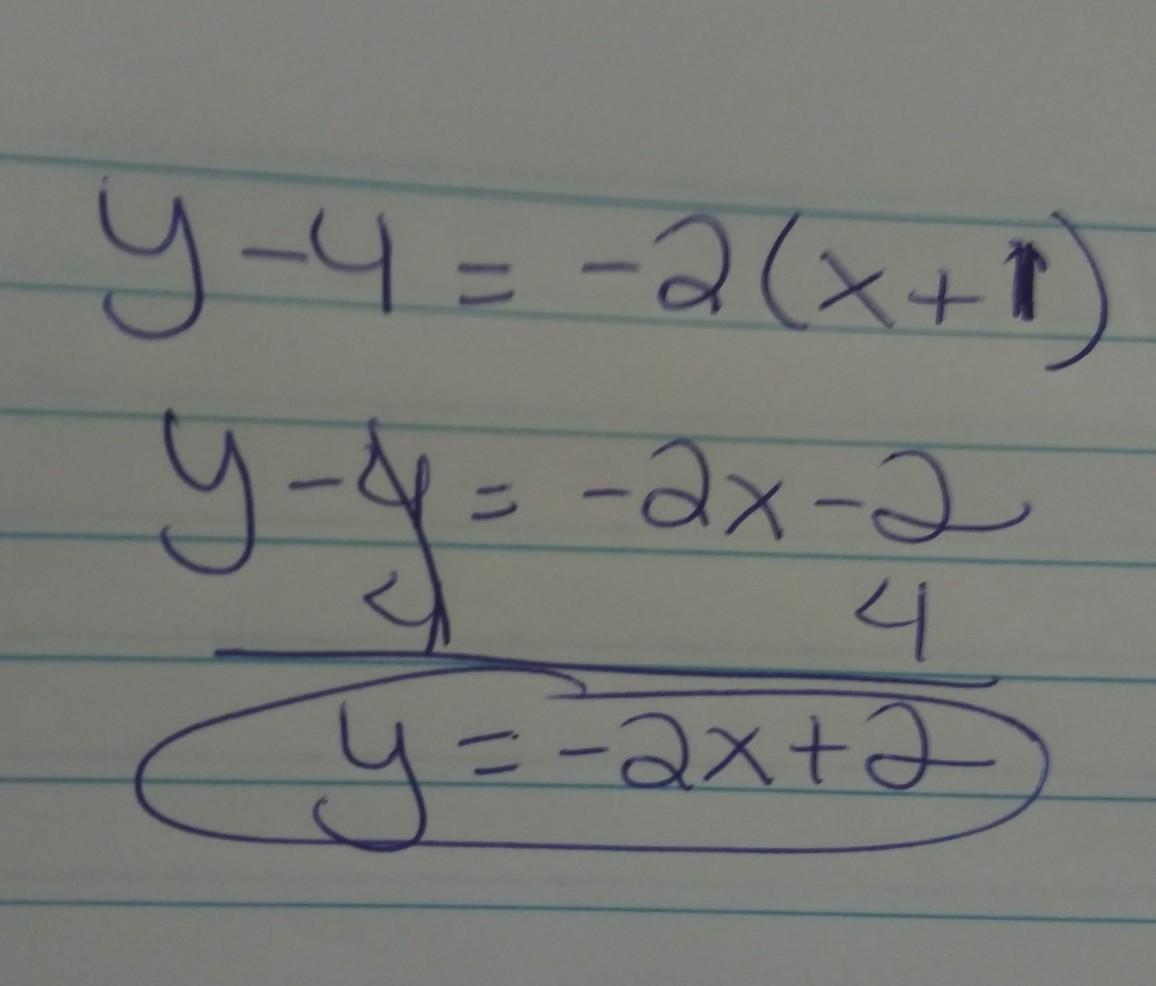 y - 4 = -2(x + 1)
y - 4 = -2x - 2
4 4
y = -2x + 2